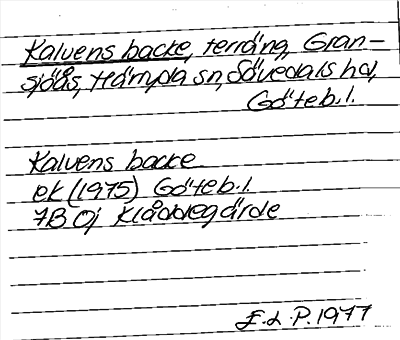 Kalvens backe, terräng, Gran-
sjöås, Hämpla sn, Sävedals hd,
Göteb. l.
Kalvens backe
ek (1975) Göteb. l.
7B 0j Kläddegärde
E. L. P. 1977